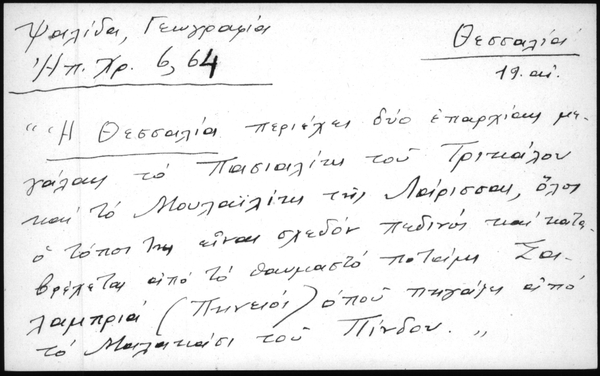 Ψαλίδα, Γεωγραφία
Ἠπ. Χρ. 6, 64
Θεσσαλία
19. αἰ.
"Ἡ Θεσσαλία περιέχει δύο ἐπαρχίαις με-
γάλαις τό Πασιαλίκι τοῦ Τρικάλου
καί τό Μουλαϊλίκι τῆς Λάρισσας, ὅλος
ὁ τόπος της εἶναι σχεδόν πεδινός καί κατα-
βρέχεται ἀπό τό θαυμαστό ποτάμι Σα-
λαμπριά (Πηνειός) ὁπού πηγάζει ἀπό
τό Μαλακάσι τοῦ Πίνδου. "